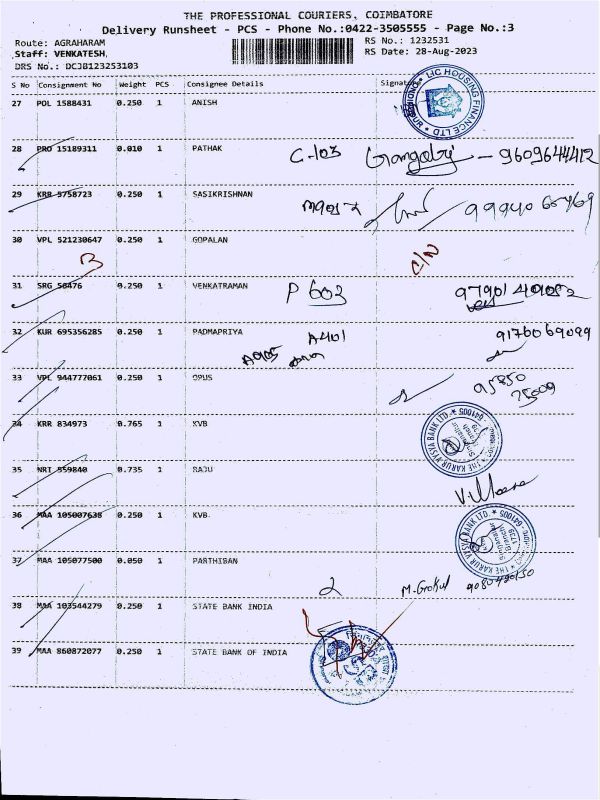 THE PROFESSIONAL COURIERS, COIMBATORE
Delivery Runsheet - PCS - Phone No.:0422-3505555 - Page No.:3
Route: AGRAHARAM
RS No.: 1232531
Staff: VENKATESH,
RS Date: 28-Aug-2023
DRS No.: DCJB123253103
S No Consignment No Weight PCS Consignee Details Signature
27 POL 1588431 0.250 1 ANISH
LIC HOUSING FINANCE LTD
28 PRO 15189311 0.010 1 PATHAK
C-103 - 9609644412
29 KRR 5758723 0.250 1 SASIKRISHNAN
30 VPL 521230647 0.250 1 GOPALAN
C/N
31 SRG 58476 0.250 1 VENKATRAMAN P 603
32 KUR 695356285 0.250 1 PADMAPRIYA
A401 9176069099
A905
33 VPL 944777061 0.250 1 OPUS
95850
25009
34 KRR 834973 0.765 1 KVB
THE KARUR VYSYA BANK LTD. 641005
1739
35 NRI 559840 0.735 1 RAJU
36 MAA 105007638 0.250 1 KVB
THE KARUR VYSYA BANK LTD. 641005
Singanallur
Branch
1739
37 MAA 105077500 0.050 1 PARTHIBAN
2 M. Gokul
38 MAA 103544279 0.250 1 STATE BANK INDIA
39 MAA 860872077 0.250 1 STATE BANK OF INDIA